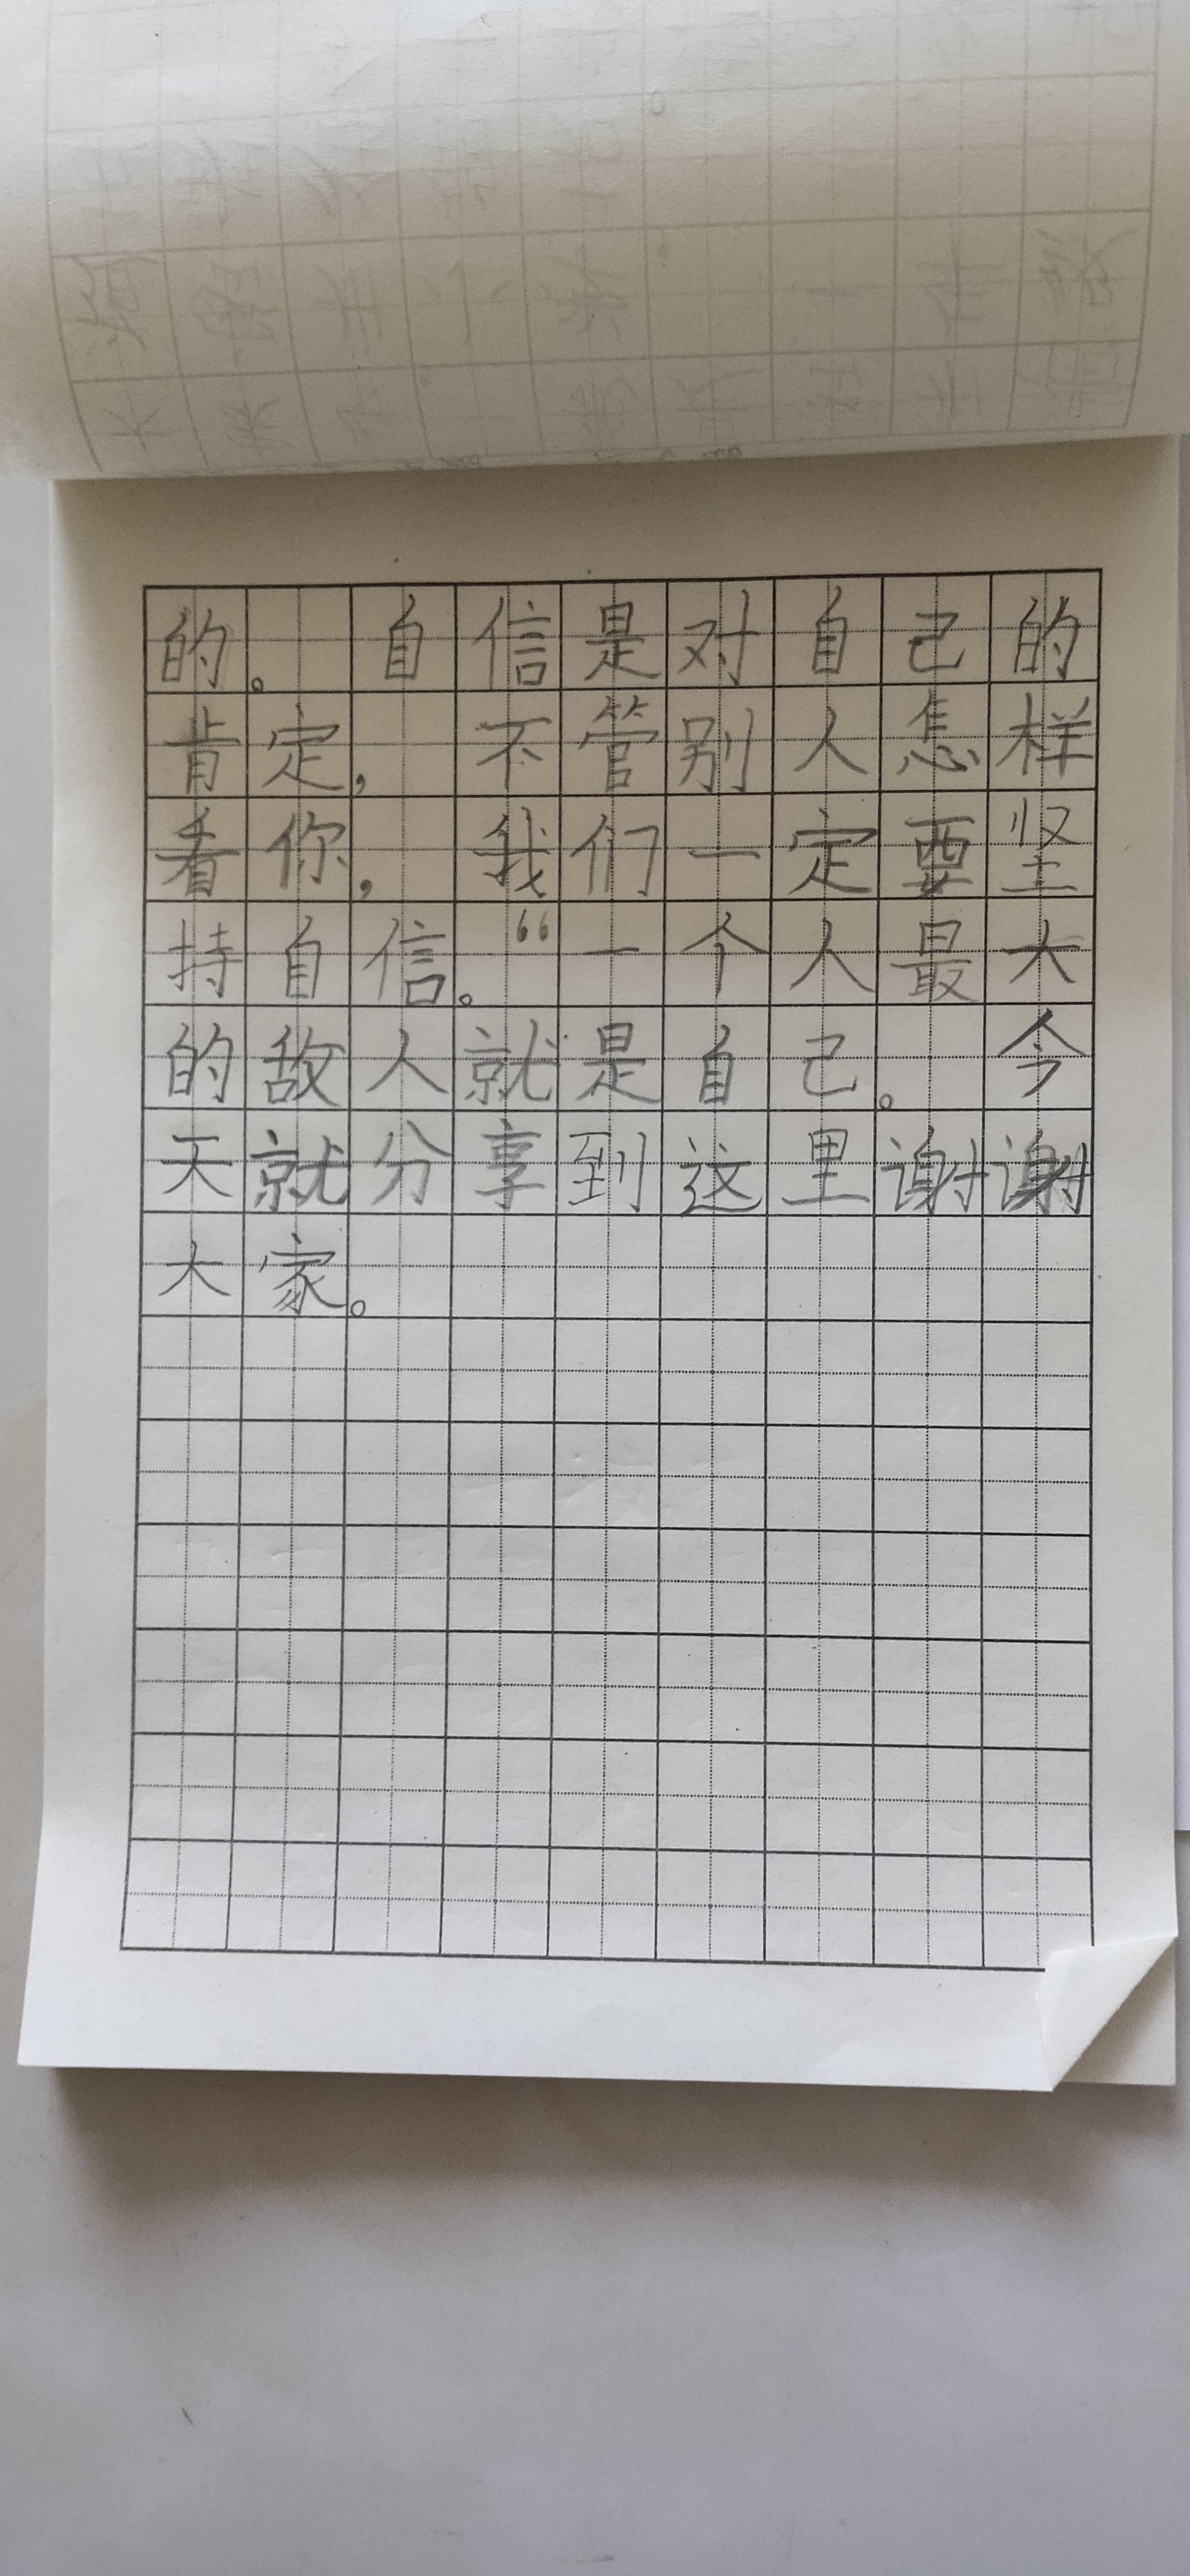 的。自信是对自己的
肯定，不管别人怎样
看你，我们一定要坚
持自信。“一个人最大
的敌人就是自己。今
天就分享到这里谢谢
大家。